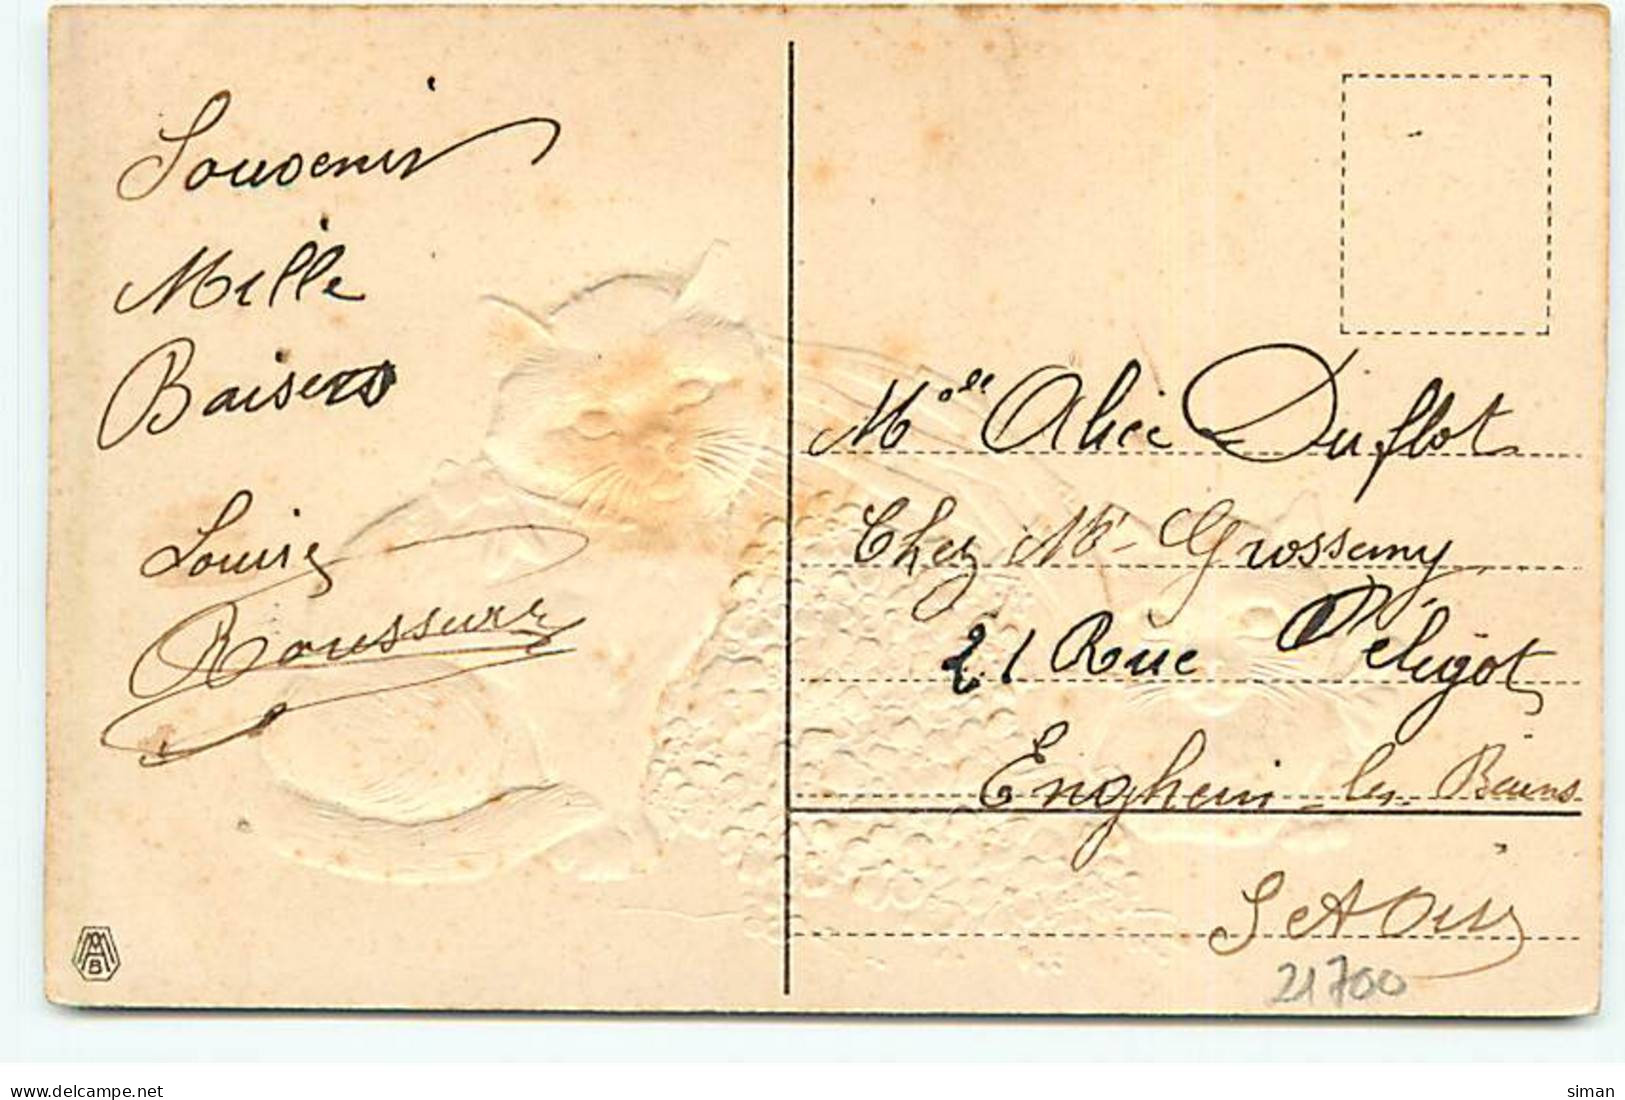 Souvenir
Mille
Baisers
Louise
M.elle Alice Duflot
Chez Mr Grossemy
21 Rue Peligot
Enghein-les-Bains
S et Oise
21700
https://www.delcampe.net
siman